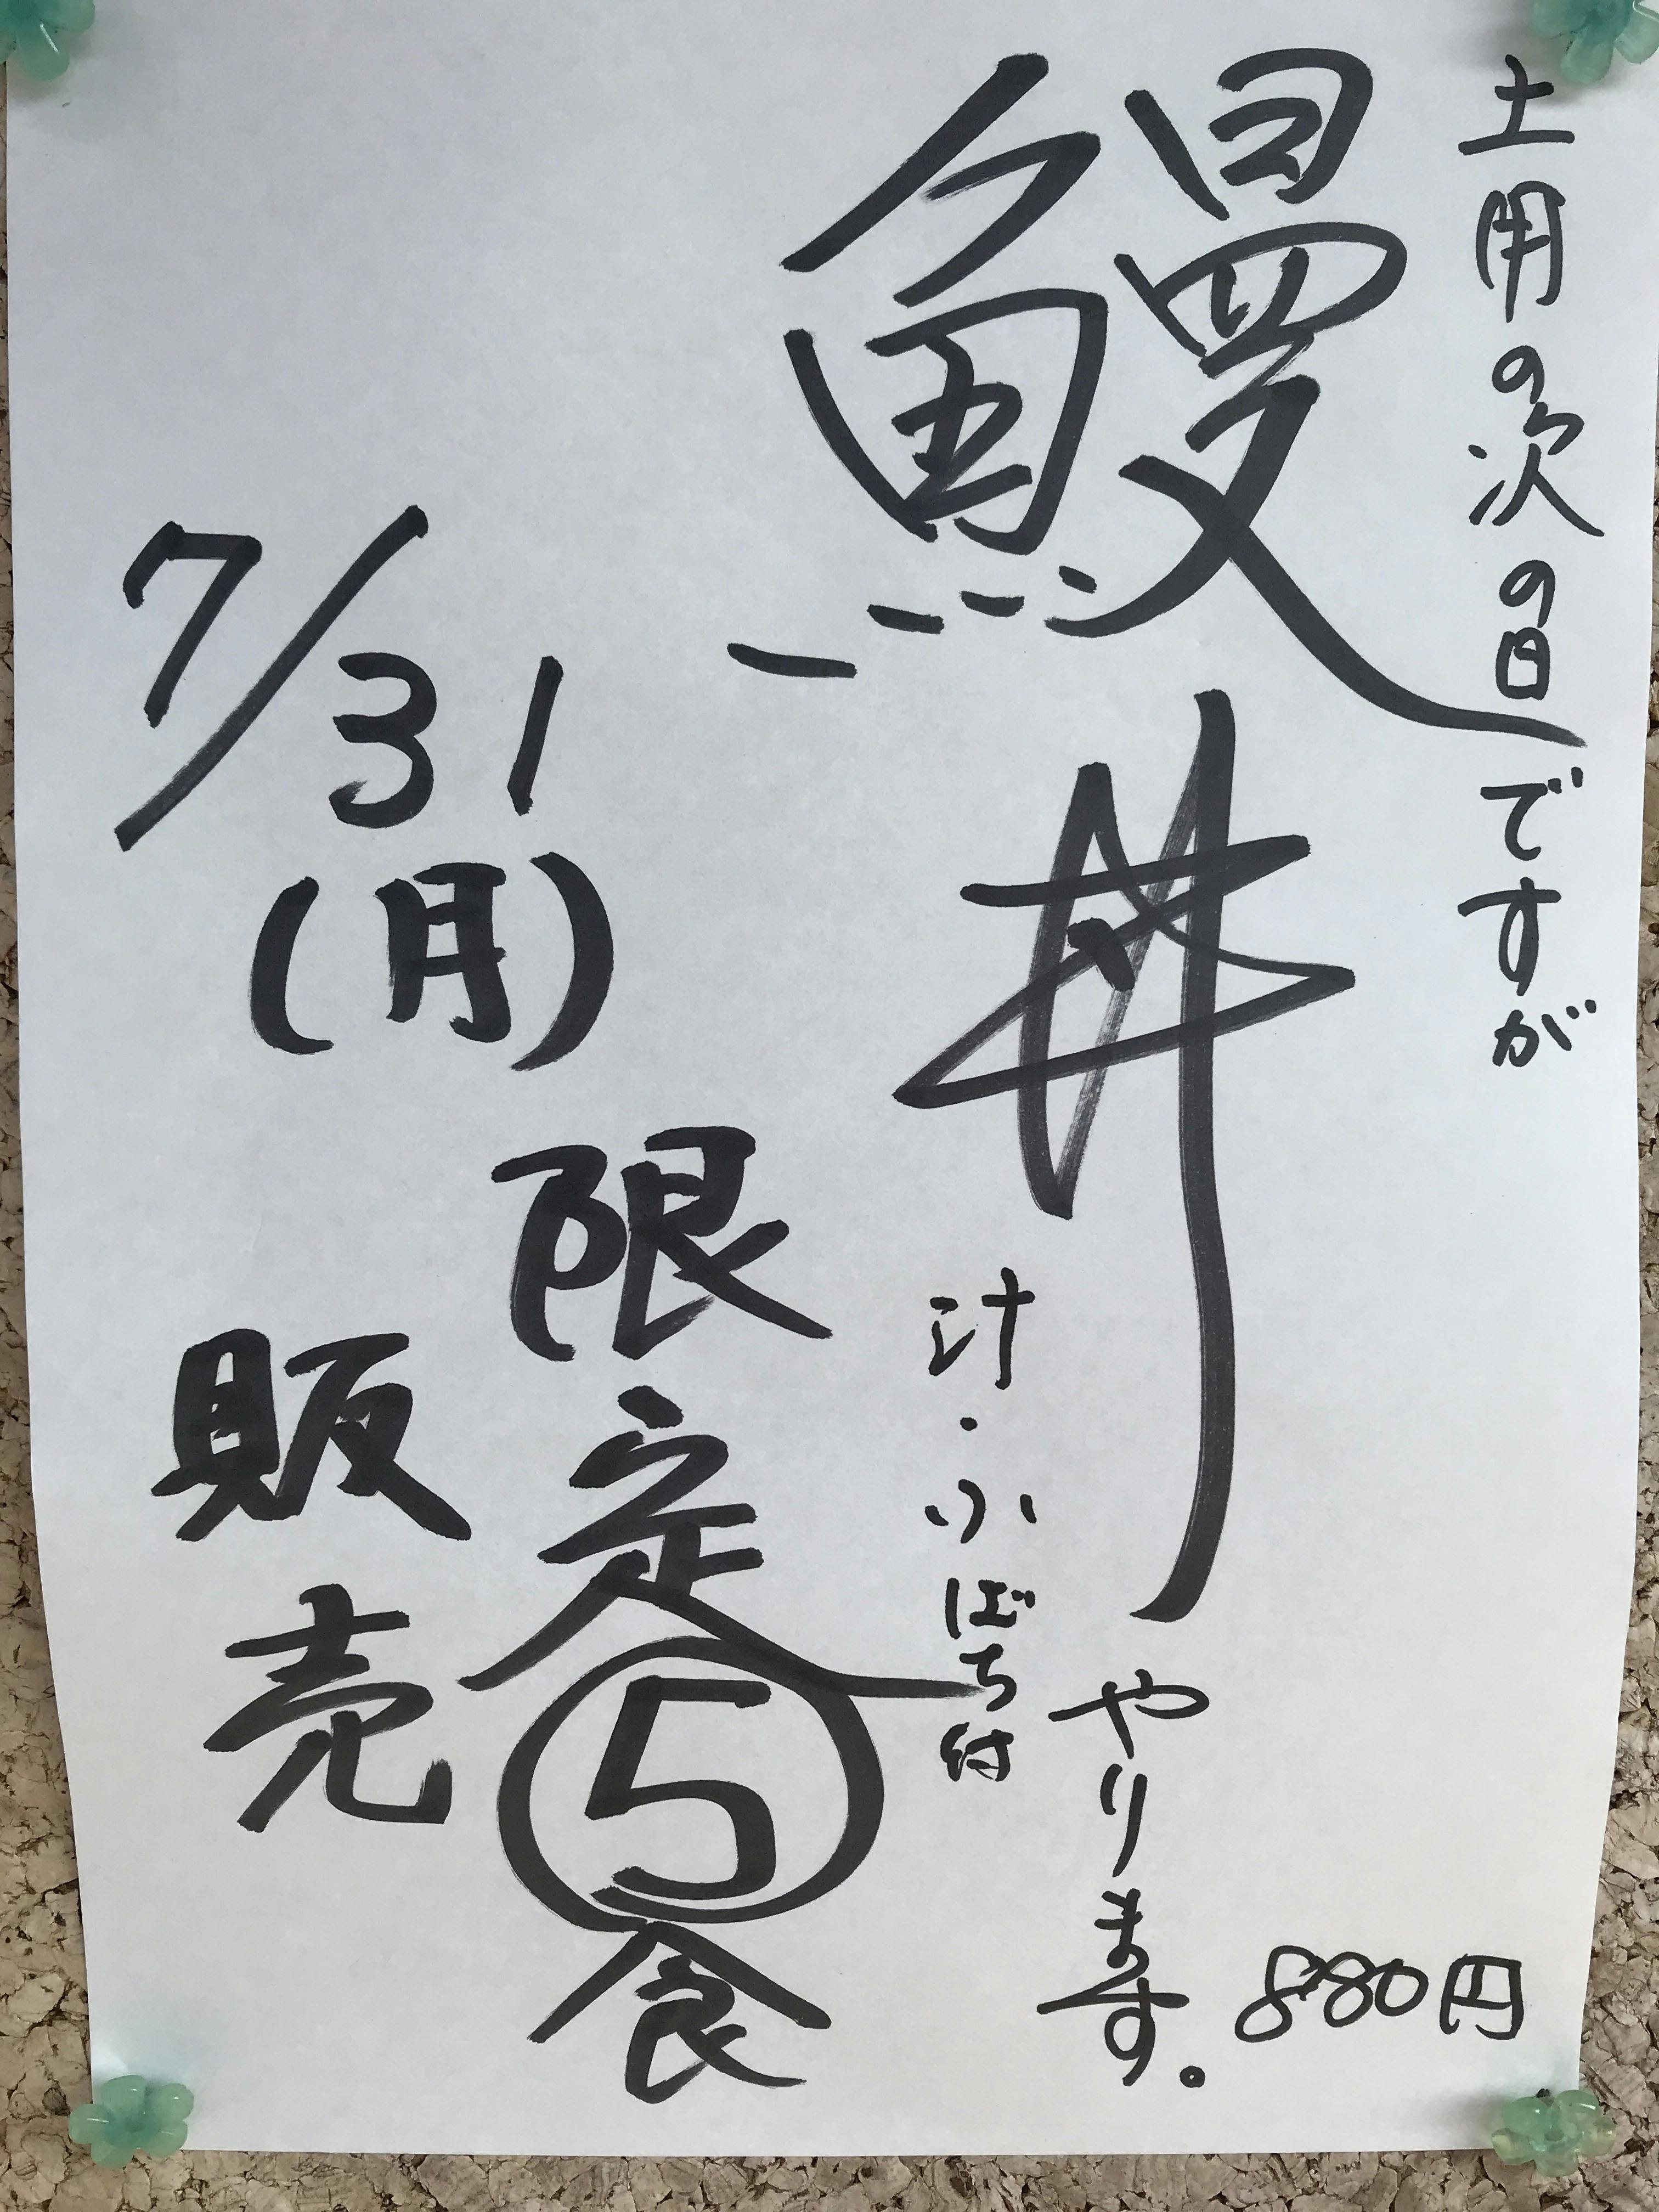 土用の次の日ですが
鰻丼やります。
880円
汁・小ばち付
7/31(月)
限定⑤食
販売